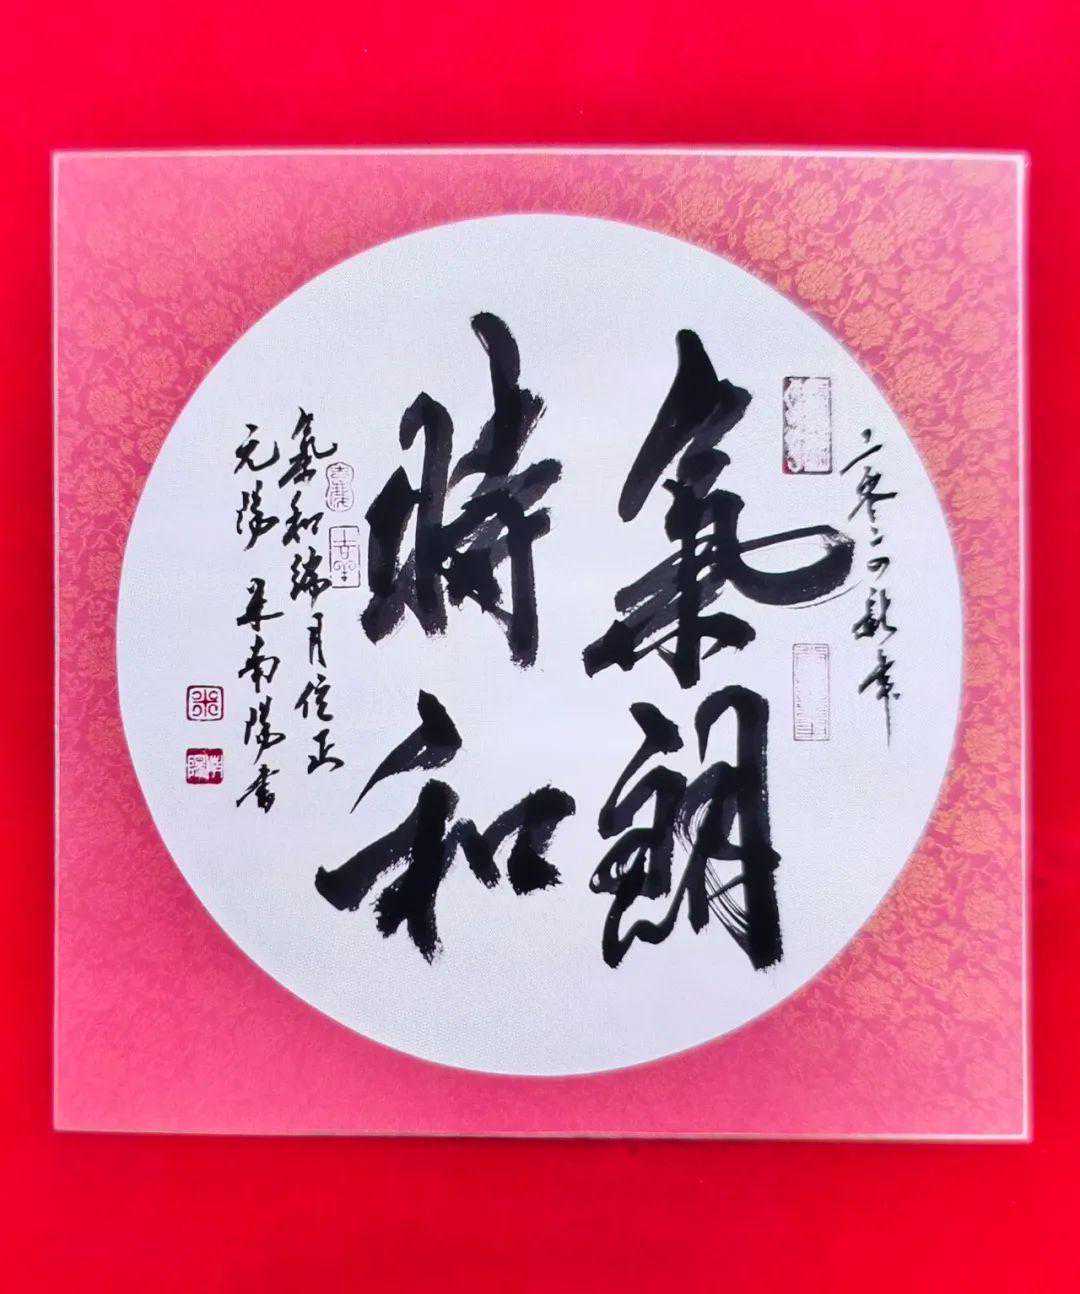 二零二四新年
氣朗
時和
氣和端月位正
元陽 米南陽書